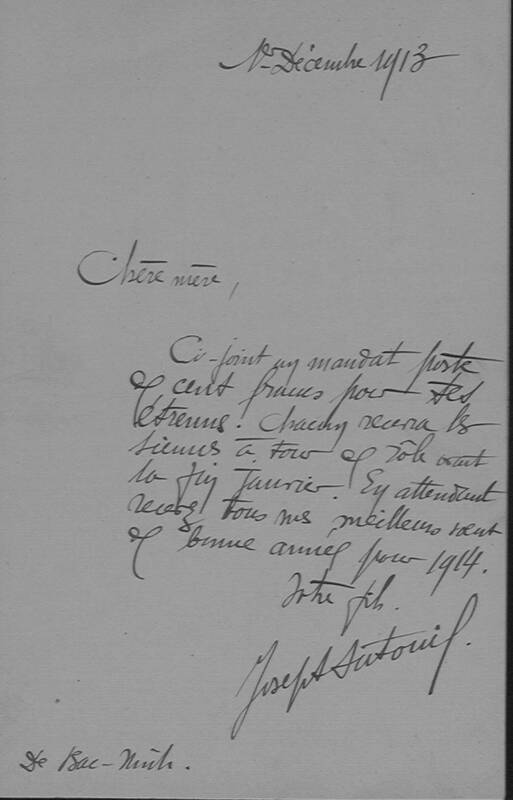 1er Décembre 1913
Chère mère,
Ci-joint un mandat poste
de cent francs pour tes
étrennes. Chacun recevra les
siennes à tour de rôle avant
la fin Janvier. En attendant
recevez tous mes meilleurs voeux
de bonne année pour 1914.
Votre fils.
Joseph
De Bac-Ninh.